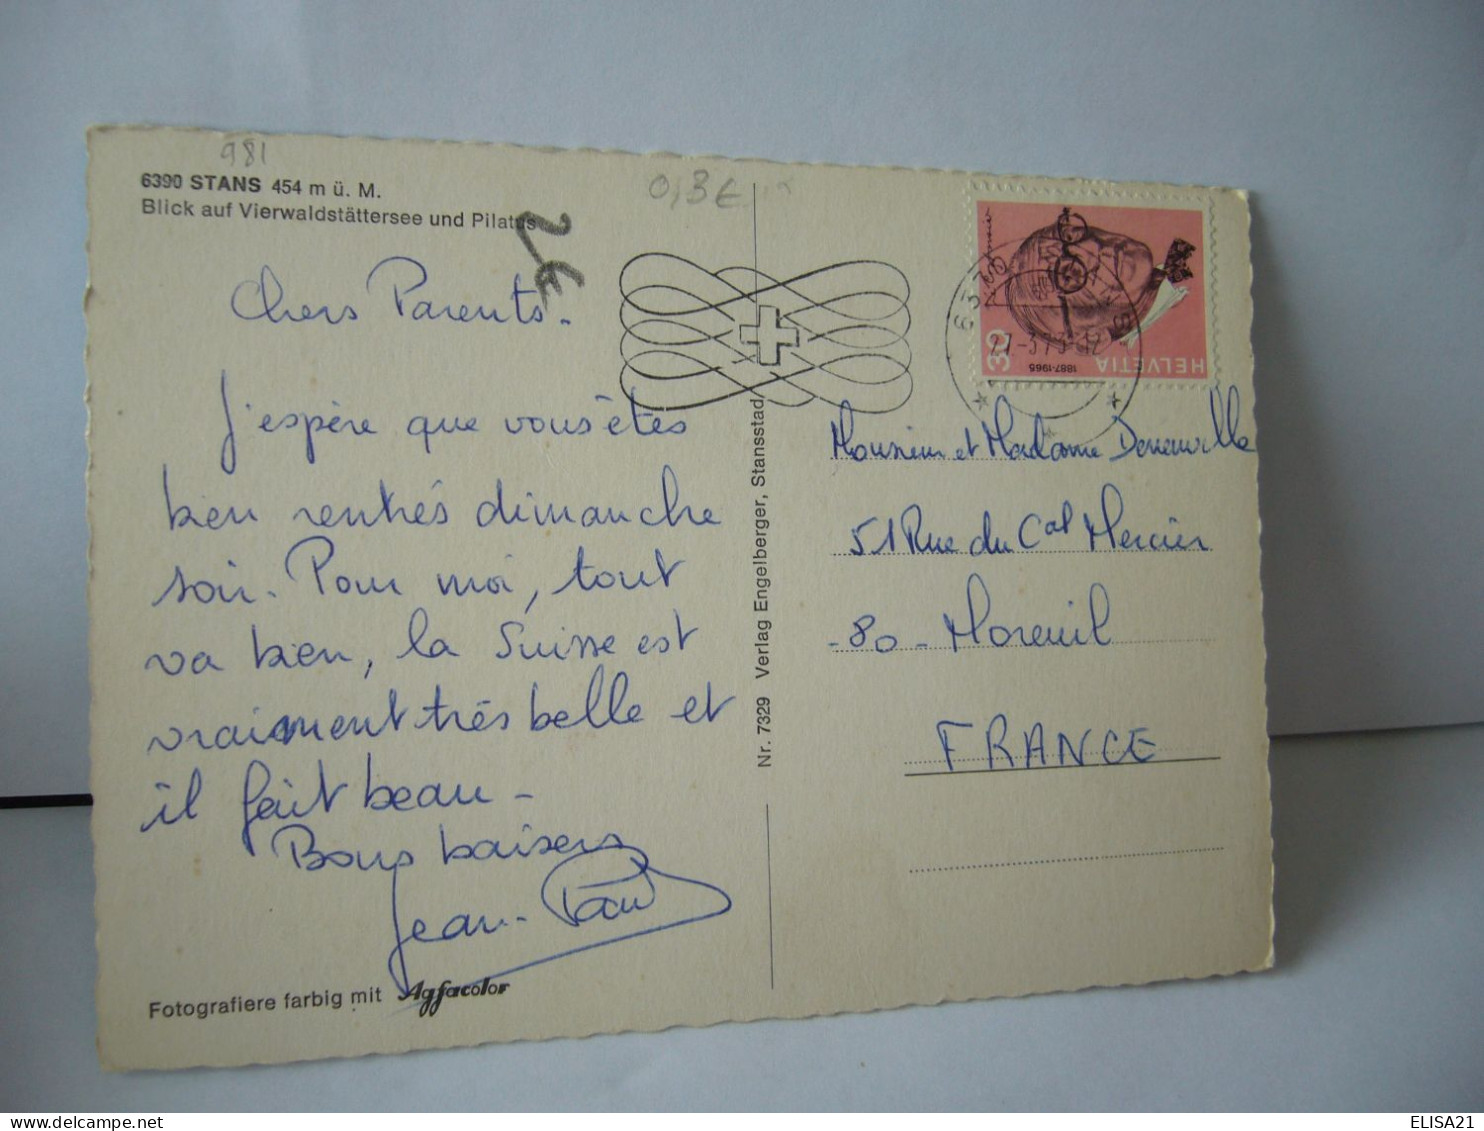 981
6390 STANS 454 m ü. M.
Blick auf Vierwaldstättersee und Pilatus
0,3€
2€
Chers Parents.
J'espère que vous êtes
bien rentrés dimanche
soir. Pour moi, tout
va bien, la Suisse est
vraiment très belle et
il fait beau -
Bons baisers
Jean-Paul
Fotografiere farbig mit Agfacolor
Nr. 7329 Verlag Engelberger, Stansstad
HELVETIA
30
1887-1965
Monsieur et Madame
51 Rue du Cal Mercier
- 80 - Moreuil
FRANCE
ELISA21